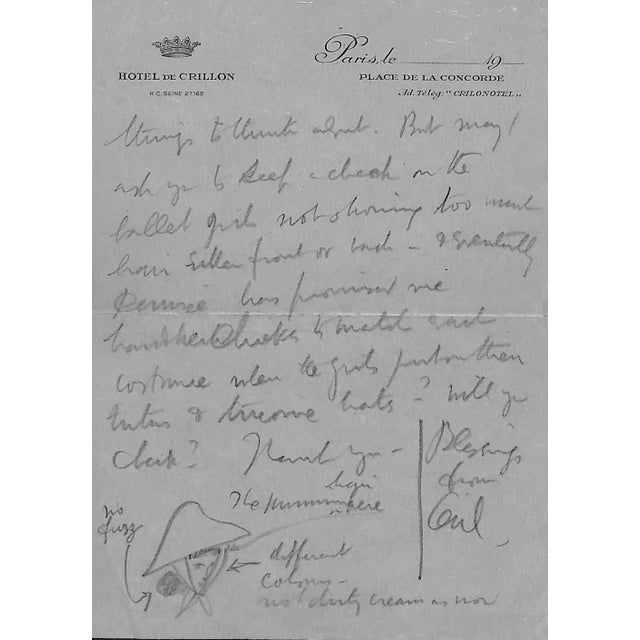 HOTEL DE CRILLON
R.C. SEINE 27.162
Paris, le 19
PLACE DE LA CONCORDE
Ad. Télég. "CRILONOTEL"
things to think about. But may I
ask you to keep a check on the
ballet girls not showing too much
hair either front or back — & eventually
has promised me
handkerchiefs to match each
costume when the girls put on their
tutus & tricorne hats — Will you
check? Thank you —
Blessings
from
Cecil
The minimum hair here
no
fuzz
different
colours —
not dirty cream as now